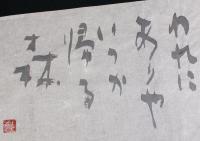 われに
ありや
いつか
帰る
森